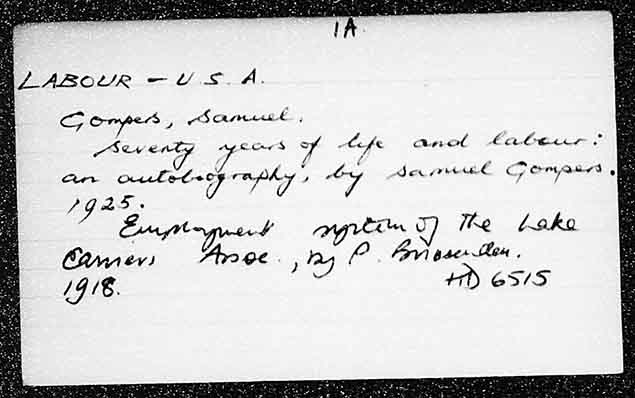 1A.
LABOUR – U.S.A.
Gompers, Samuel.
Seventy years of life and labour:
an autobiography, by Samuel Gompers.
1925.
Employment system of the Lake
Carriers Assoc., by P. Brissenden.
1918. HD 6515